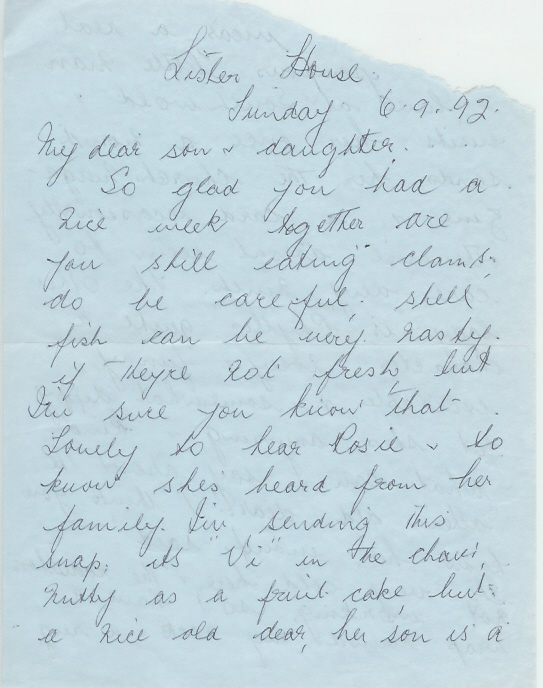 Lister House.
Sunday 6.9.92.
My dear son & daughter.
So glad you had a
nice week together are
you still eating clams.
do be careful, shell
fish can be very nasty.
if they're not fresh, but
I'm sure you know that.
Lovely to hear Rosie & to
know she's heard from her
family. I'm sending this
snap, its "Vi" in the chair,
Nutty as a fruit cake, but
a nice old dear, her son is a